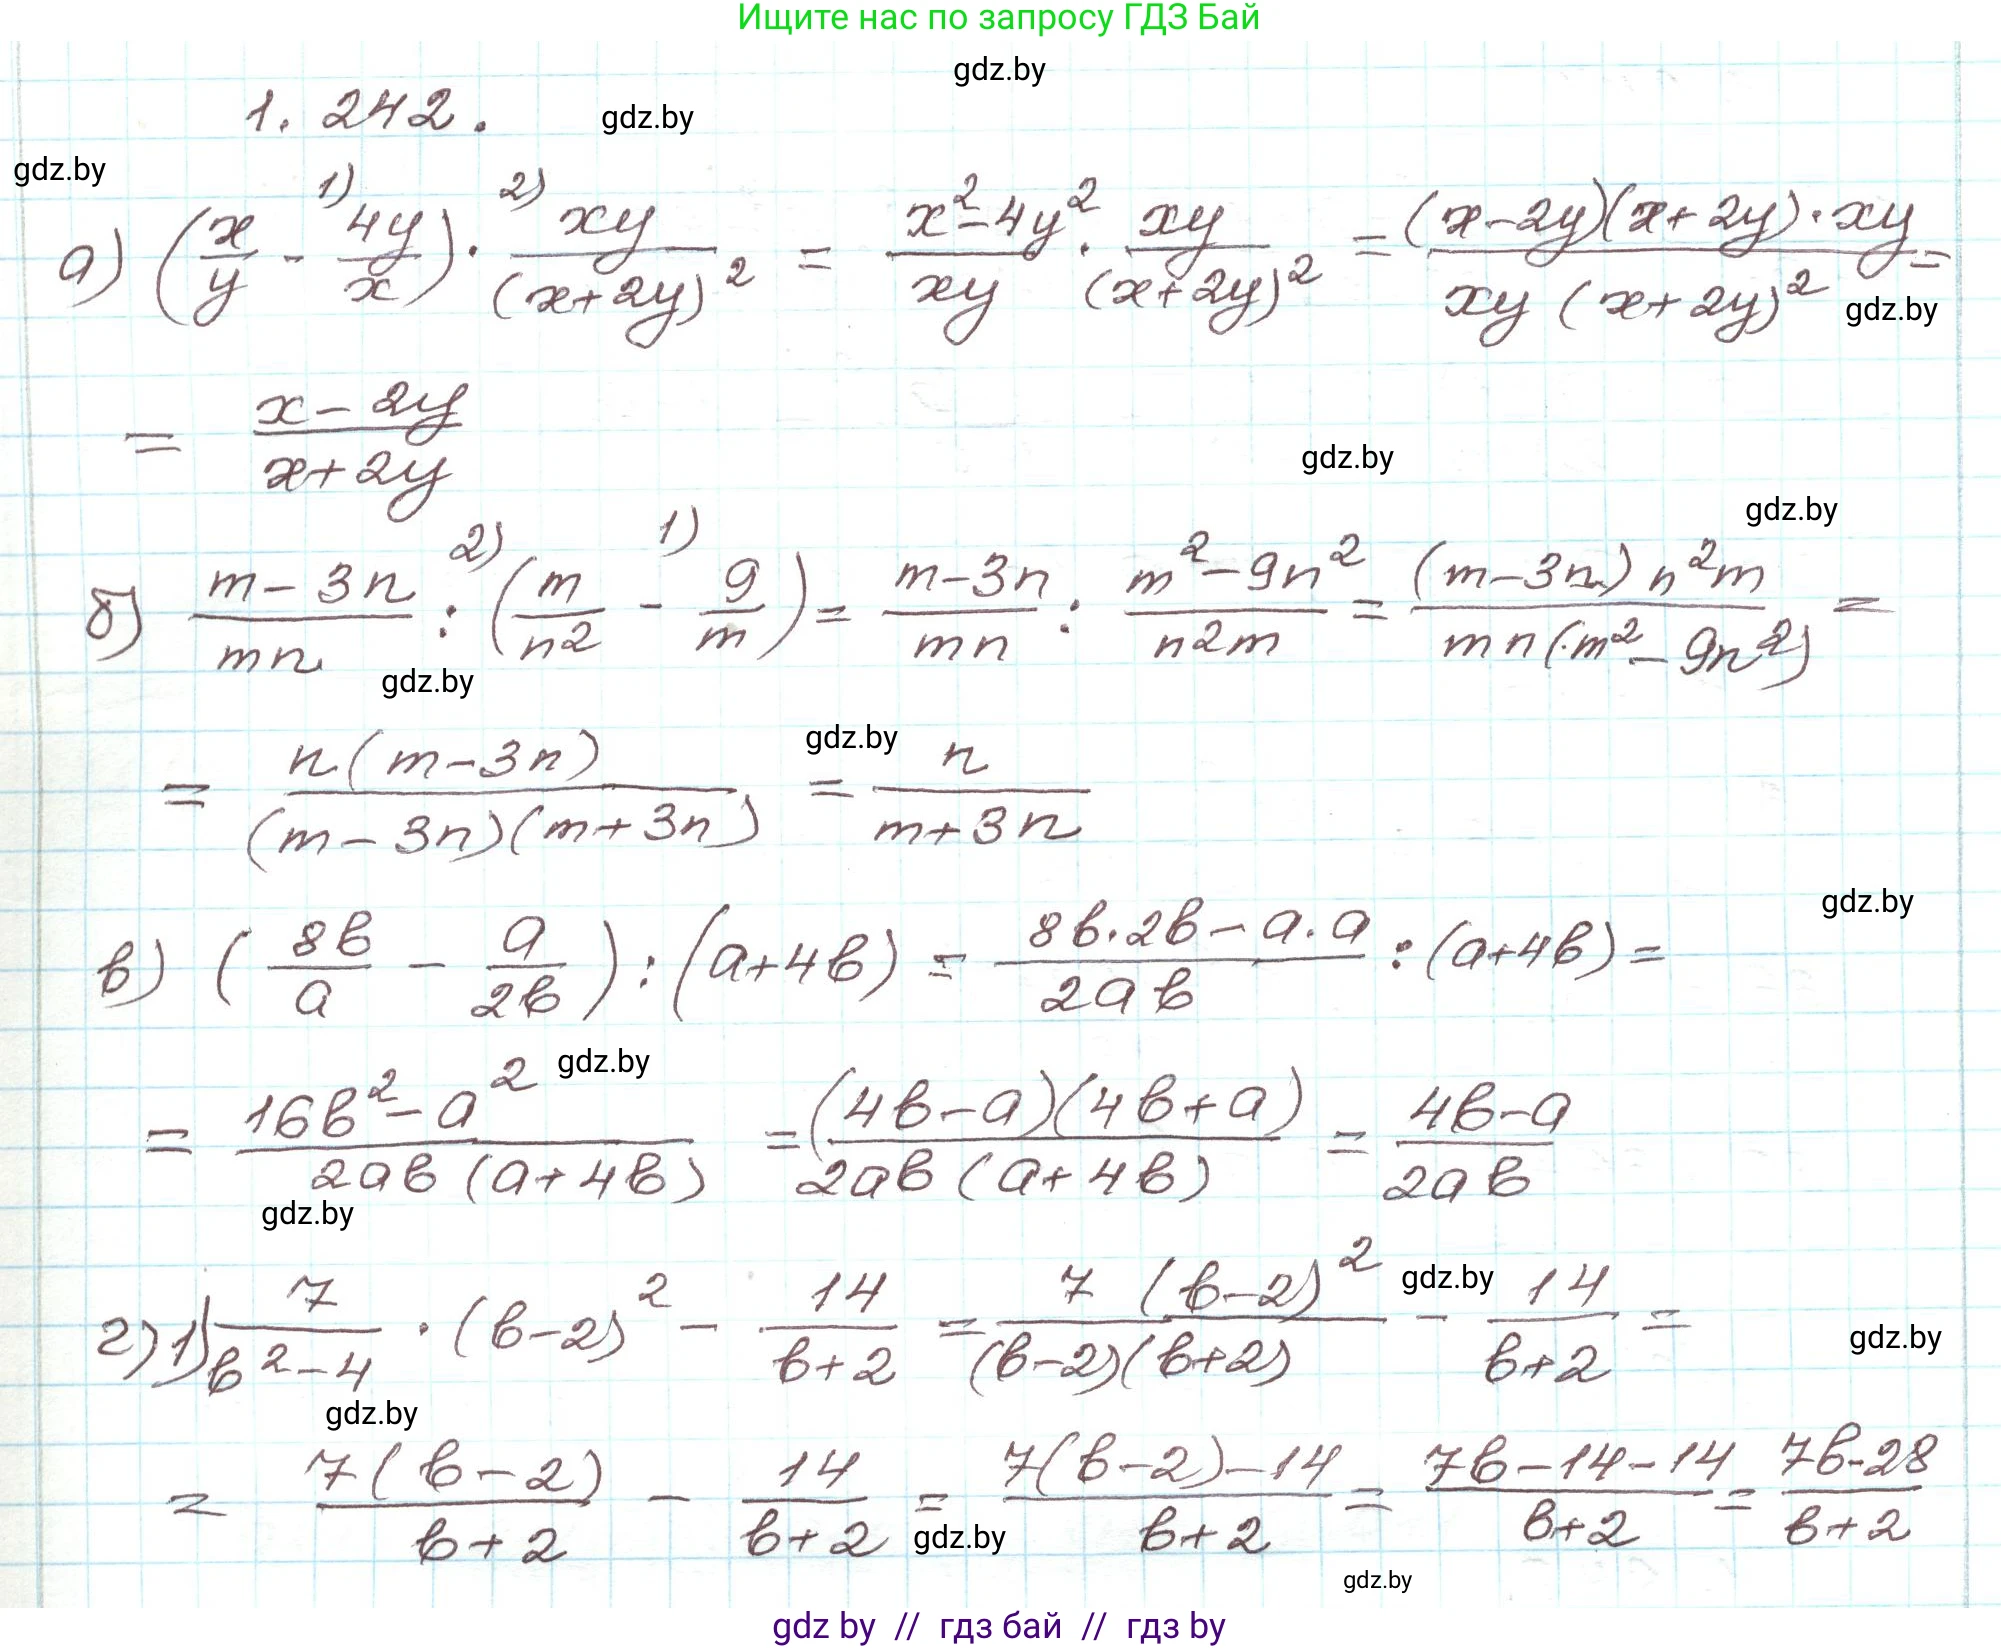 Ищите нас по запросу ГДЗ Бай
gdz.by
1.242. gdz.by
gdz.by
а) (x/y - 4y/x) · xy/(x+2y)² = (x²-4y²)/xy · xy/(x+2y)² = (x-2y)(x+2y)·xy / xy(x+2y)² =
1) 2)
gdz.by
= (x-2y)/(x+2y)
gdz.by
gdz.by
2) 1)
б) (m-3n)/mn : (m/n² - 9/m) = (m-3n)/mn : (m²-9n²)/n²m = (m-3n)n²m / mn(m²-9n²) =
gdz.by
= n(m-3n) / (m-3n)(m+3n) = n/(m+3n)
gdz.by
gdz.by
в) (8b/a - a/2b) : (a+4b) = (8b·2b-a·a)/2ab : (a+4b) =
gdz.by
= (16b²-a²) / 2ab(a+4b) = (4b-a)(4b+a) / 2ab(a+4b) = (4b-a)/2ab
gdz.by
г) 1) 7/(b²-4) · (b-2)² - 14/(b+2) = 7(b-2)² / (b-2)(b+2) - 14/(b+2) =
gdz.by
gdz.by
gdz.by
= 7(b-2)/(b+2) - 14/(b+2) = (7(b-2)-14)/(b+2) = (7b-14-14)/(b+2) = (7b-28)/(b+2)
gdz.by
gdz.by
gdz by // гдз бай // гдз by